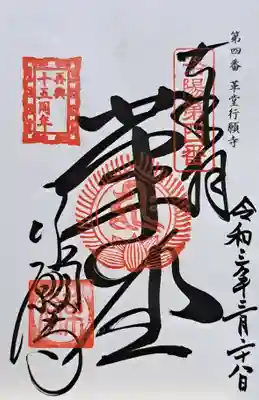 第四番 革堂行願寺
奉拝
洛陽第四番
革堂
行願寺
令和三年三月二十八日
再興
十五周年